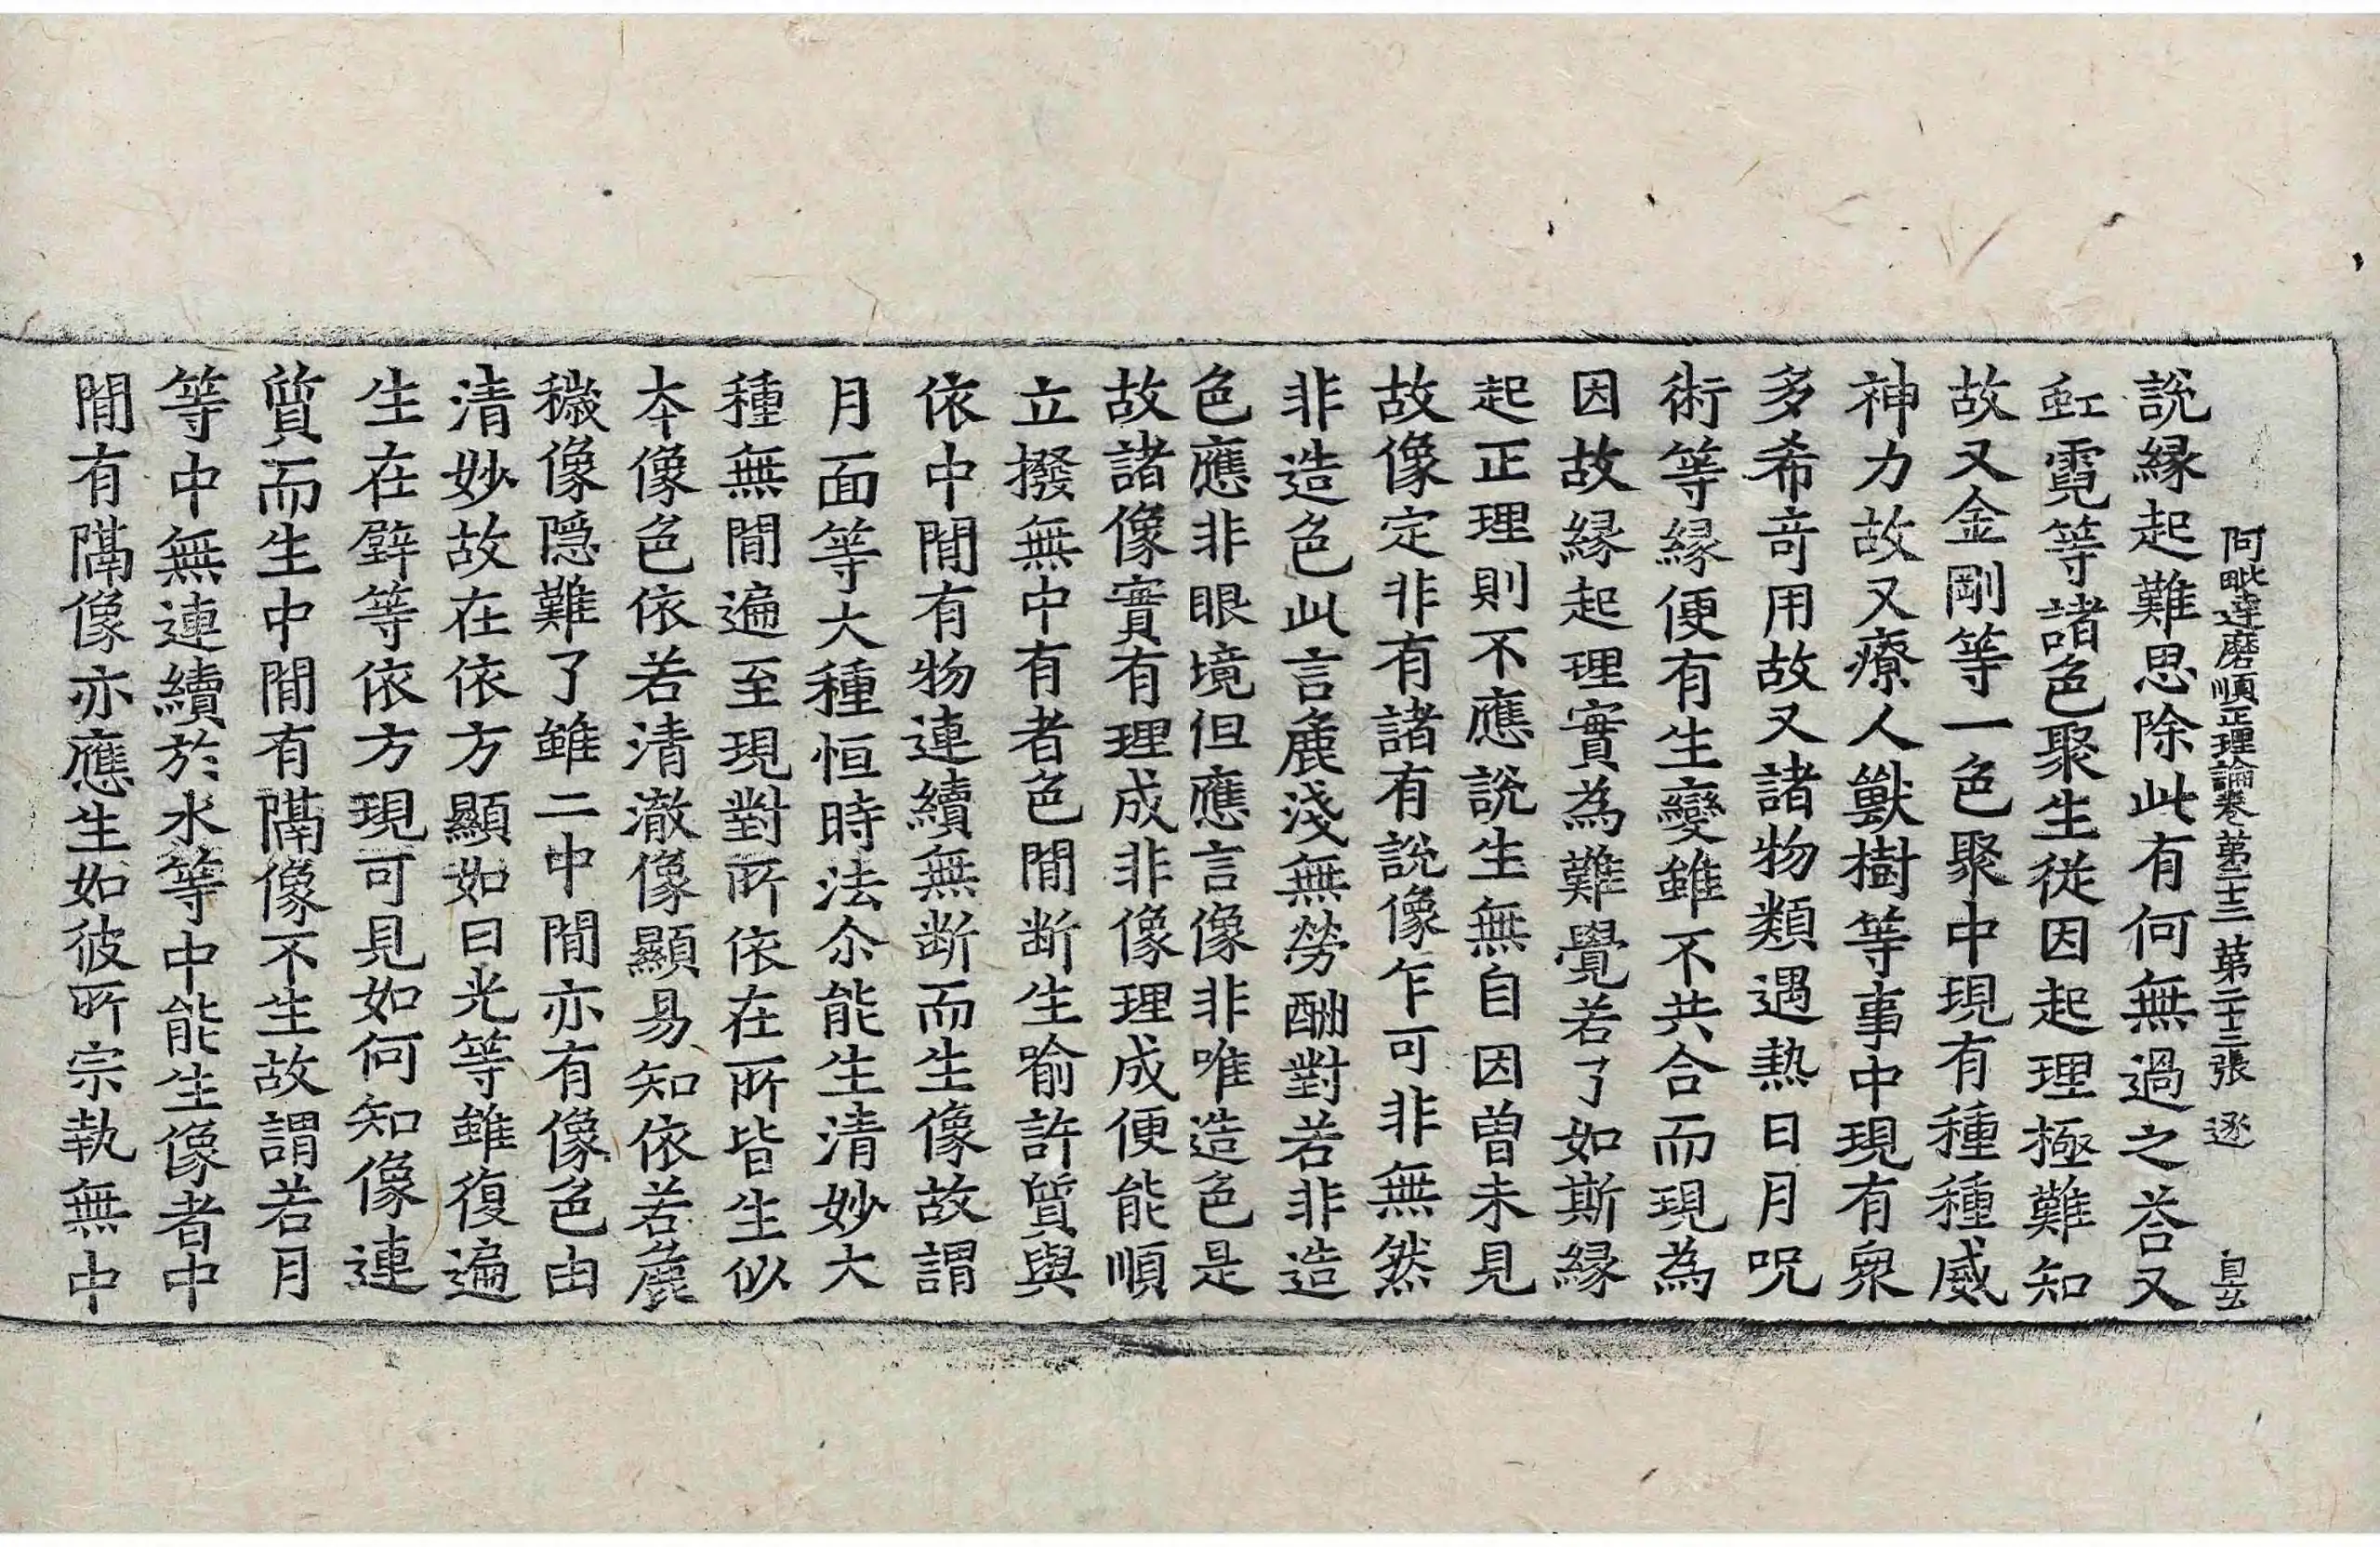 阿毗達磨順正理論卷第二十三 第二十三張 逐
說縁起難思除此有何無過之荅又
虹霓等諸色聚生從因起理極難知
故又金剛等一色聚中現有種種威
神力故又療人獸樹等事中現有衆
多希竒用故又諸物類遇熱日月呪
術等縁便有生變雖不共合而現為
因故縁起理實為難覺若了如斯縁
起正理則不應說生無自因曽未見
故像定非有諸有說像乍可非無然
非造色此言麁淺無勞酬對若非造
色應非眼境但應言像非唯造色是
故諸像實有理成非像理成便能順
立撥無中有者色間断生喻許質與
依中間有物連續無断而生像故謂
月面等大種恒時法尒能生清妙大
種無間遍至現對所依在所皆生似
夲像色依若清澈像顯易知依若麁
穢像隱難了雖二中間亦有像色由
清妙故在依方顯如日光等雖復遍
生在壁等依方現可見如何知像連
質而生中間有隔像不生故謂若月
等中無連續於水等中能生像者中
間有隔像亦應生如彼所宗執無中